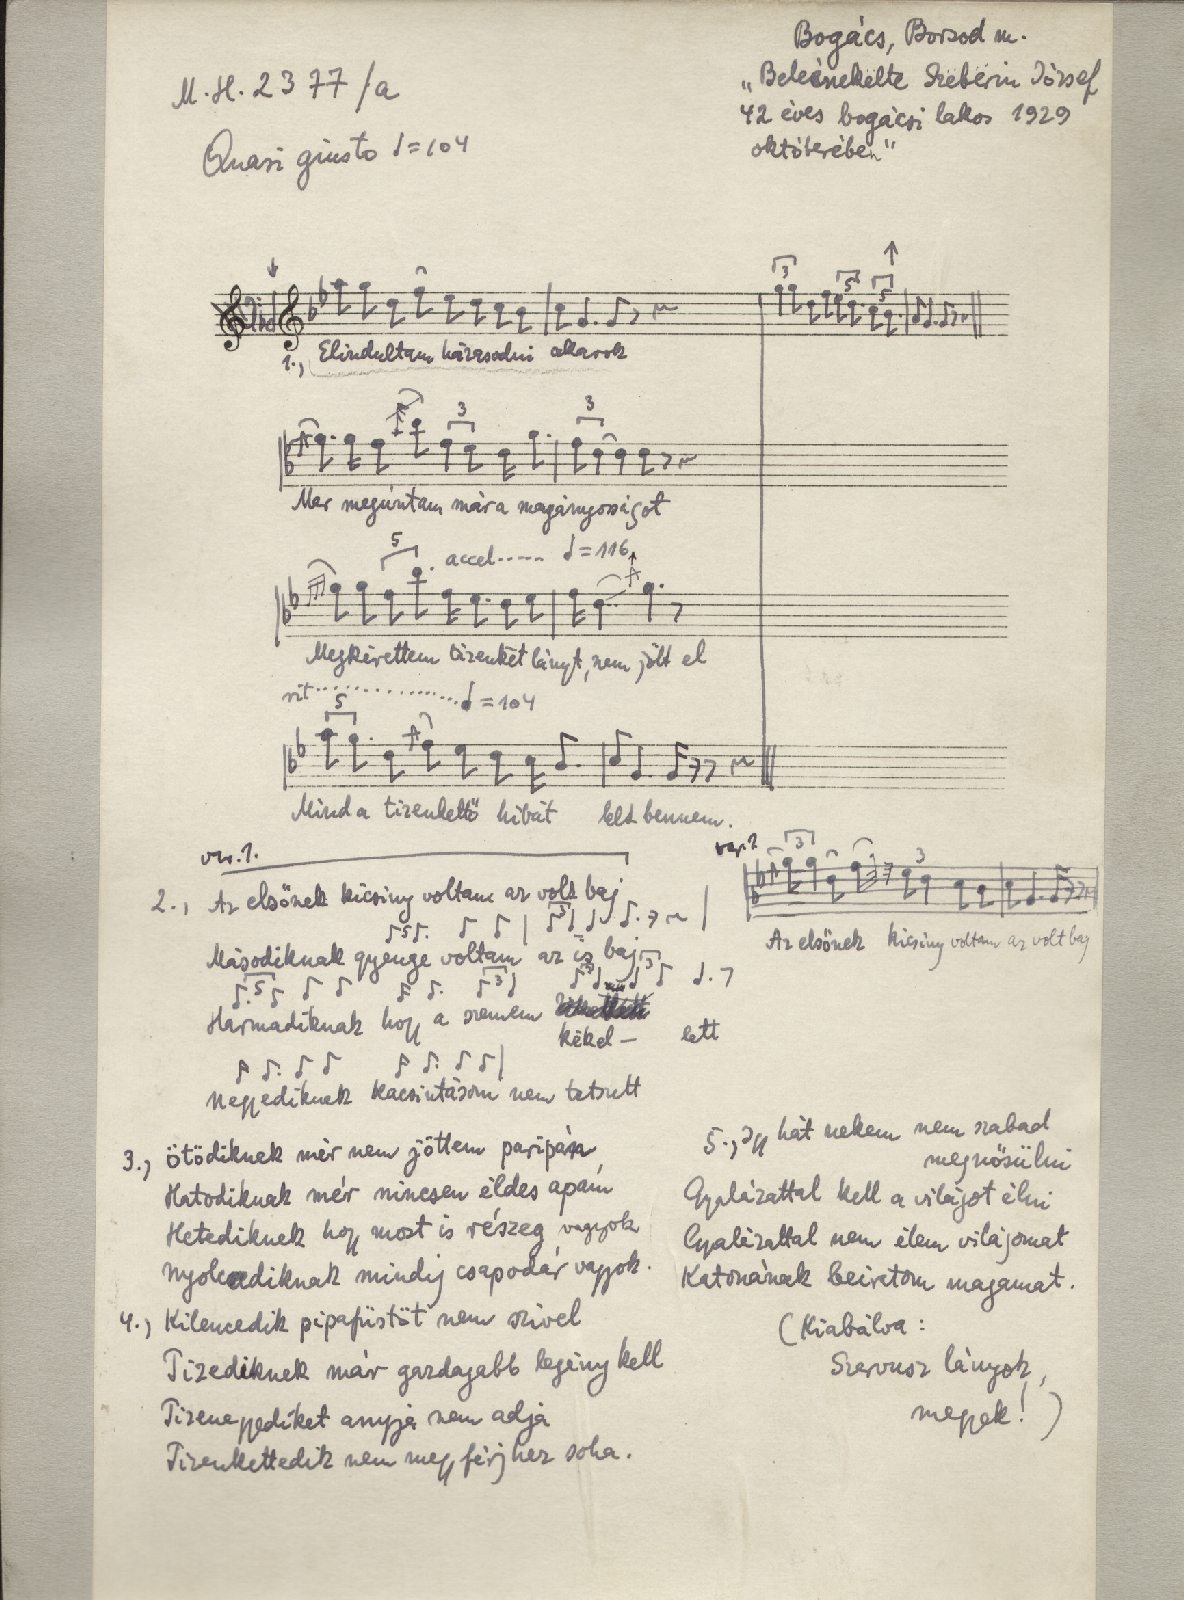 Bogács, Borsod m.
„Beleénekelte Szeberin József
42 éves bogácsi lakos 1929
októberében"
M.H. 2377/a
Quasi giusto ♩=104
1., Elindultam házasodni akarok
3
5
5
3
3
Mer meguntam mára magányosságot
5
accel...... ♩=116
Megkérettem tizenkét lányt, nem jött el
rit.............. ♩=104
5
Mind a tizenkettő hibát lelt bennem.
vsz.1.
2., Az elsőnek kicsiny voltam az volt baj
3
3
Az elsőnek kicsiny voltam az volt baj
5 3
Másodiknak gyenge voltam az is baj
5 3 3 3
Harmadiknak hogy a szemem
kékel- lett
Negyediknek kacsintásom nem tetszett
3., Ötödiknek mér nem jöttem paripán
Hatodiknak mér nincsen éldes apám
Hetediknek hogy most is részeg vagyok
Nyolcadiknak mindig csapodár vagyok.
4., Kilencedik pipafüstöt nem szivel
Tizediknek már gazdagabb legény kell
Tizenegyediket anyja nem adja
Tizenkettedik nem megy férjhez soha.
5., Igy hát nekem nem szabad
megnősülni
Gyalázattal kell a világot élni
Gyalázattal nem élem világomat
Katonának beiratom magamat.
(Kiabálva:
Szervusz lányok,
megyek! )